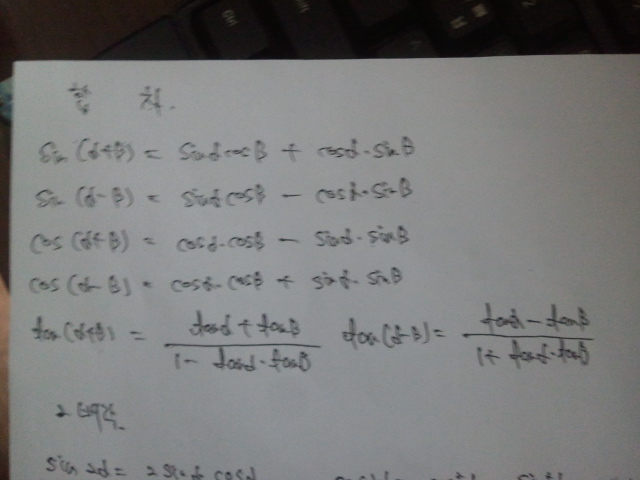 합 차.
sin (α+β) = sinα cosβ + cosα·sinβ
sin (α-β) = sinα cosβ - cosα·sinβ
cos (α+β) = cosα·cosβ - sinα·sinβ
cos (α-β) = cosα·cosβ + sinα·sinβ
tan (α+β) = (tanα + tanβ) / (1 - tanα·tanβ) tan (α-β) = (tanα - tanβ) / (1 + tanα·tanβ)
2배각.
sin 2α = 2 sinα cosα